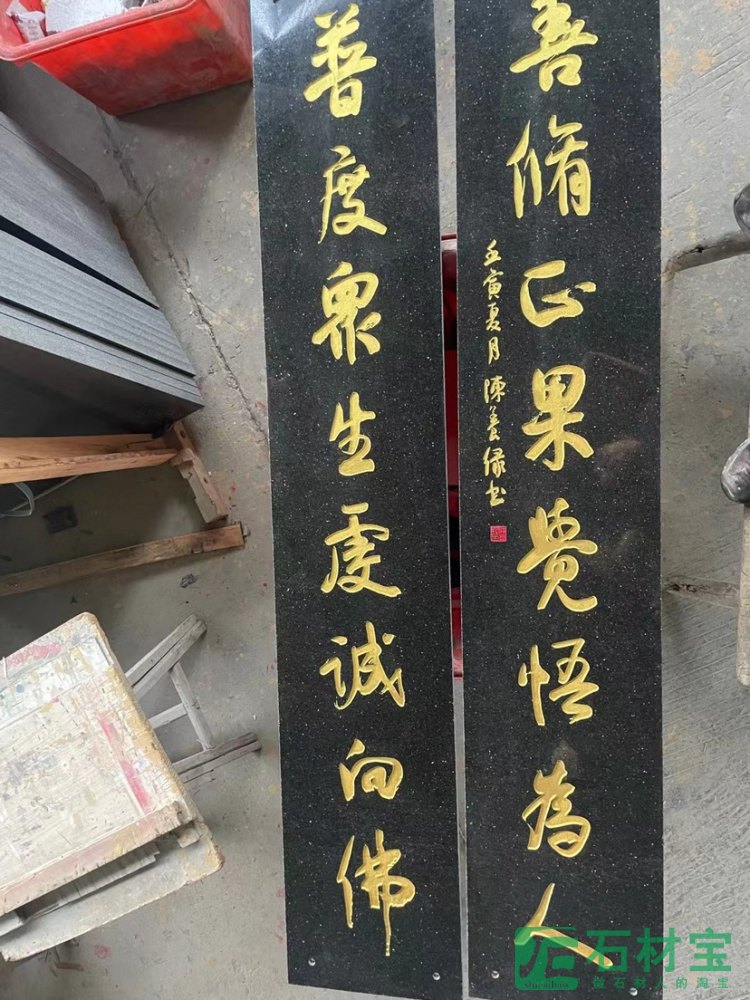 普度眾生虔誠向佛
善脩正果覺悟為人
壬寅夏月 陳
石材宝
做石材人的淘宝
shicaibao